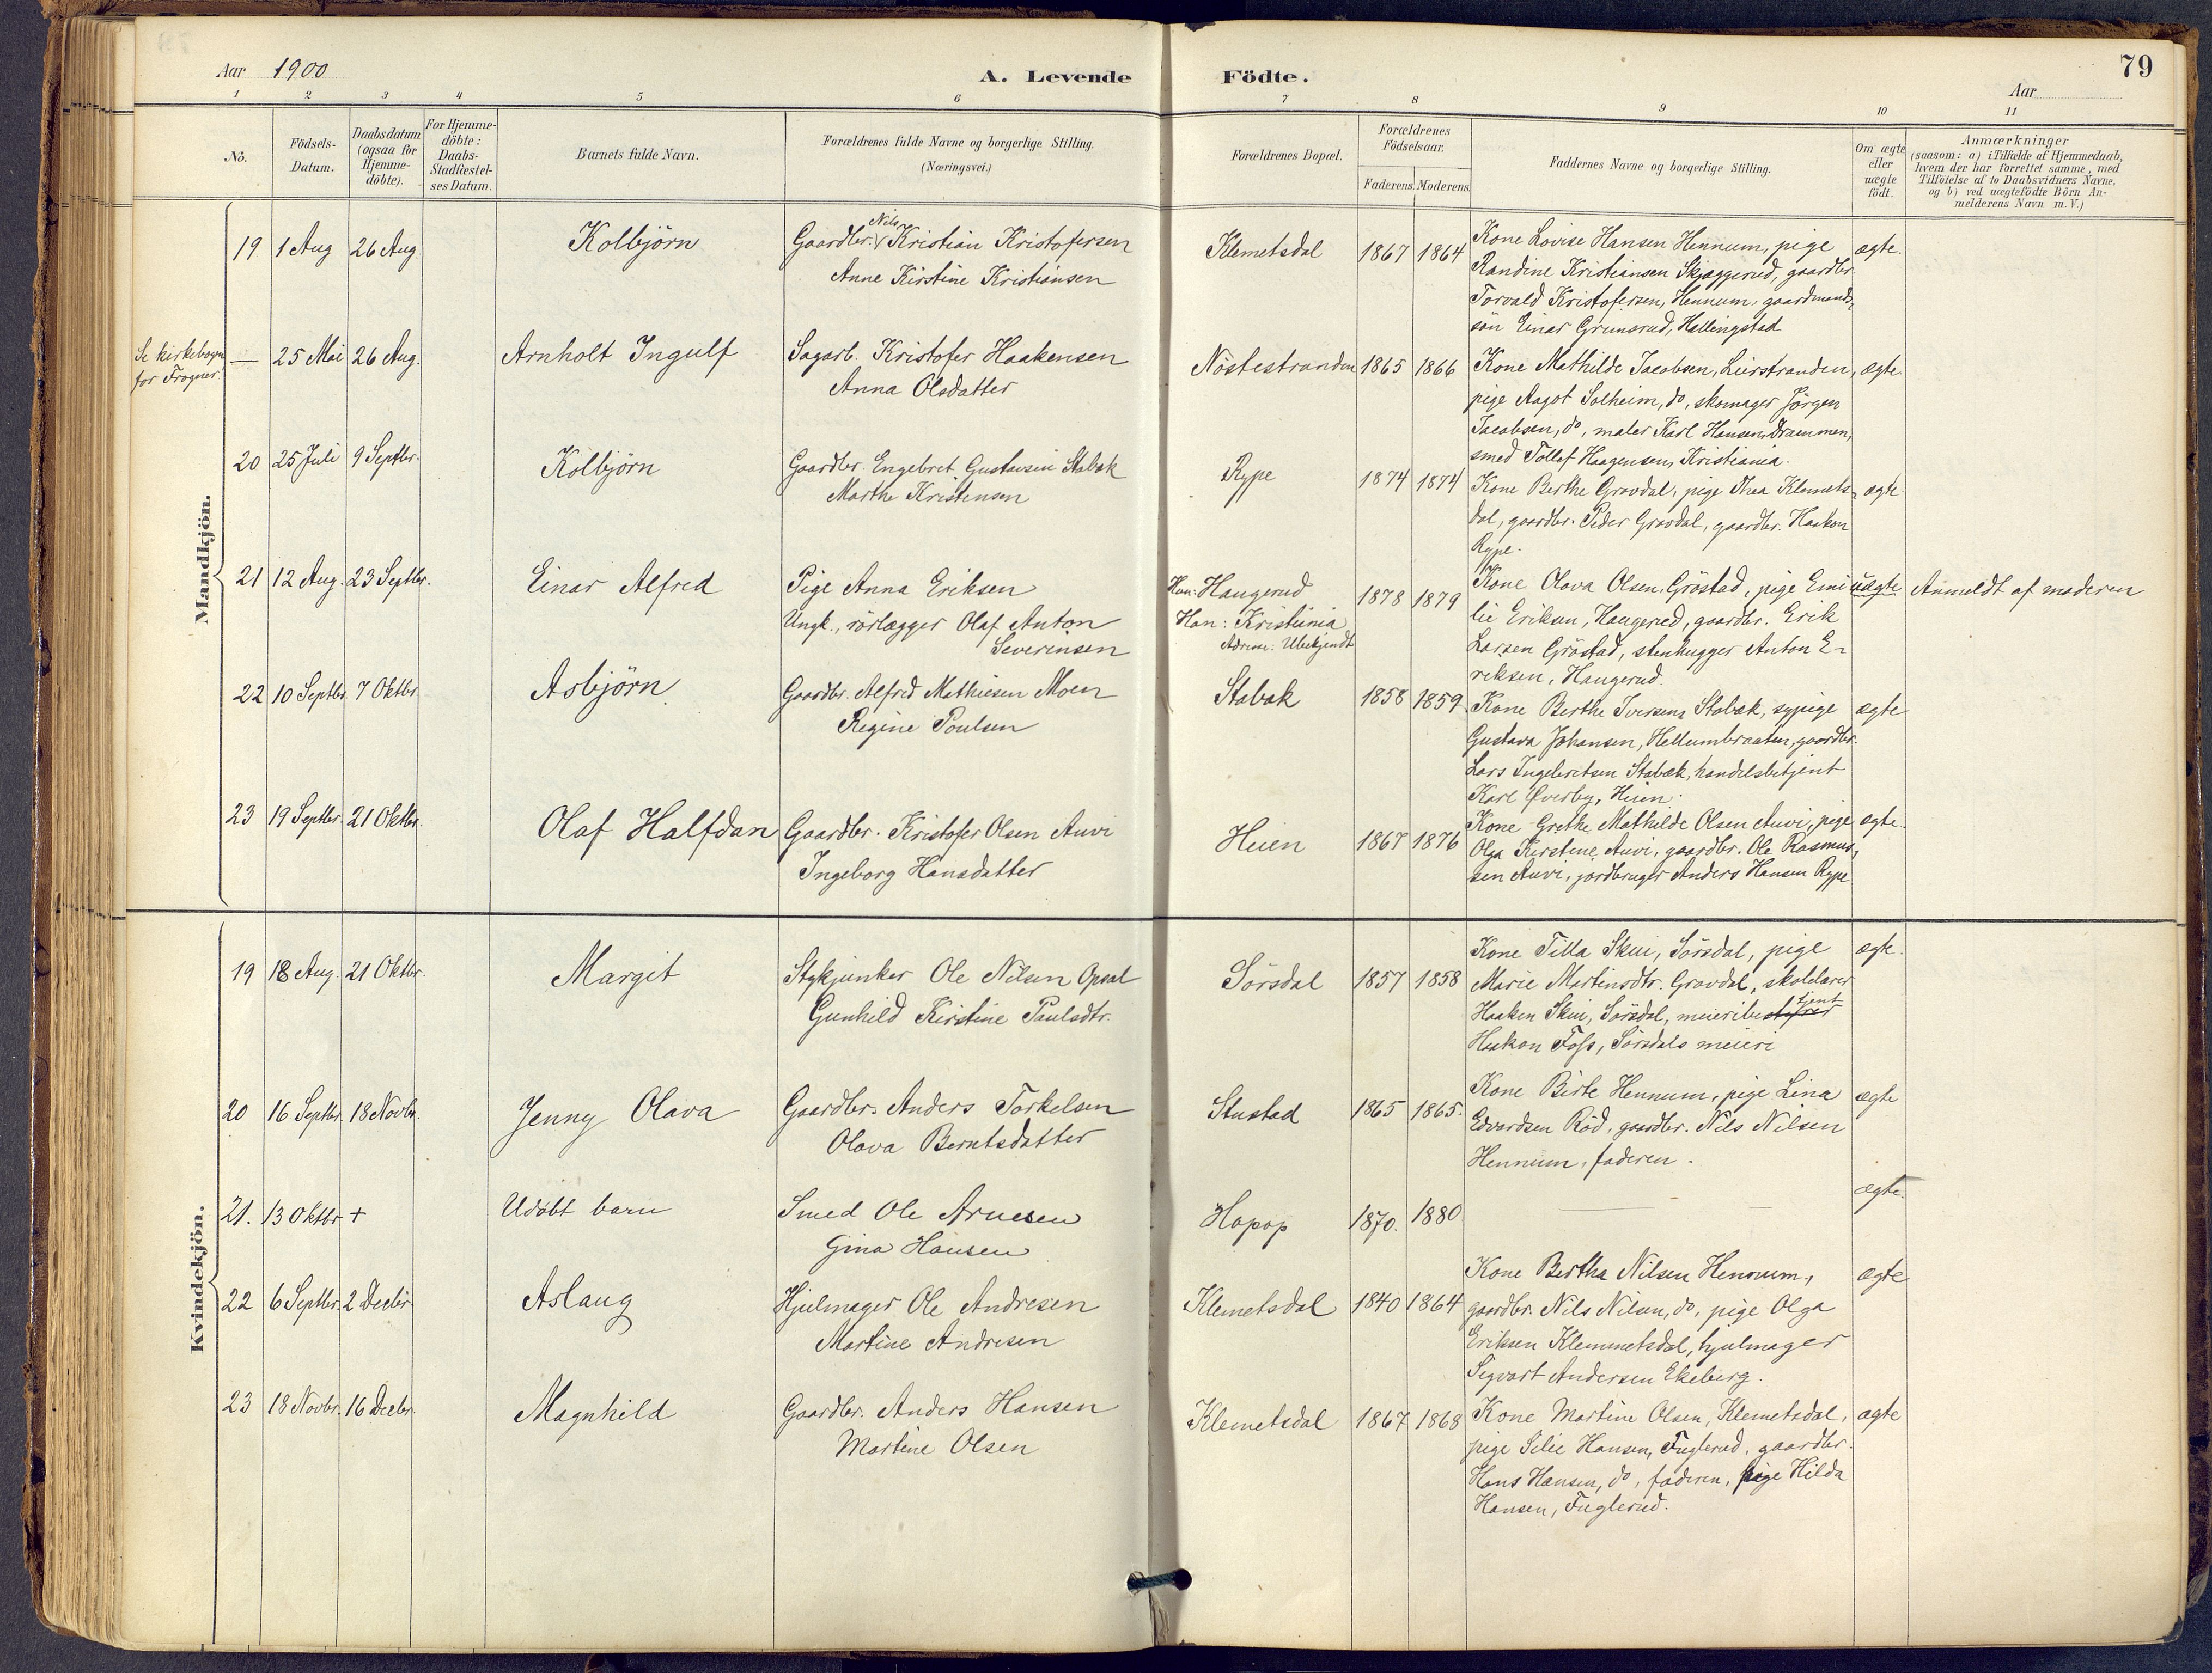 Aar 1900
A. Levende Födte.
79
Aar
1 2 3 4 5 6 7 8 9 10 11
No.
Födsels-Datum.
Daabsdatum (ogsaa for Hjemme-döbte).
For Hjemme-döbte: Daabs-Stadfæstel-ses Datum.
Barnets fulde Navn.
Forældrenes fulde Navne og borgerlige Stilling.
(Næringsvei.)
Forældrenes Bopæl.
Forældrenes Födselsaar.
Faderens. Moderens.
Faddernes Navne og borgerlige Stilling.
Om ægte eller uægte födt.
Anmærkninger
(saasom: a) i Tilfælde af Hjemmedaab,
hvem der har forrettet samme, med
Tilföielse af to Daabsvidners Navne,
og b) ved uægtefödte Börn An-
melderens Navn m. V.)
Mandkjön.
19 1 Aug 26 Aug Kolbjörn Gaardbr. Nils Kristian Kristofersen
Anne Kirstine Kristiansen
Klemetsdal 1867 1864 Kone Lovise Hansen Hennum, pige ægte.
Randine Kristiansen Skjæggerud, gaardbr.
Torvald Kristofersen, Hennum, gaardmands-
sön Einar Grunsrud, Hellingstad
Se kirkebogen
for Frogner.
— 25 Mai 26 Aug. Arnholt Ingulf Sagarb. Kristofer Haakensen
Anna Olsdatter
Nöstestranden 1865 1866 Kone Mathilde Jacobsen, Lierstranden, ægte
pige Aagot Solheim, do, skomager Jörgen
Jacobsen, do, maler Karl Hansen, Drammen,
smed Tollef Haagensen, Kristiania.
20 25 Juli 9 Septbr. Kolbjörn Gaardbr. Engebret Gustavsen Stabæk
Marthe Kristensen
Rype 1874 1874 Kone Berthe Gravdal, pige Thea Klemets- ægte
dal, gaardbr. Peder Gravdal, gaardbr. Haakon
Rype.
21 12 Aug. 23 Septbr. Einar Alfred Pige Anna Eriksen
Ungk., rörlægger Olaf Anton
Severinsen
Hun: Haugerud
Han: Kristiania
Adresse: Ubekjendt
1878 1879 Kone Olava Olsen, Gröstad, pige Emi- uægte Anmeldt af moderen
lie Eriksen, Haugerud, gaardbr. Erik
Larsen Gröstad, stenhugger Anton E-
riksen, Haugerud.
22 10 Septbr. 7 Oktbr. Asbjörn. Gaardbr. Alfred Mathiesen Moen
Regine Poulsen
Stabæk 1858 1859 Kone Berthe Iversen, Stabæk, sypige ægte
Gustava Johansen, Hellumbraaten, gaardbr.
Lars Ingebretsen Stabæk, handelsbetjent
Karl Øverby, Heien.
23 19 Septbr. 21 Oktbr. Olaf Halfdan Gaardbr. Kristofer Olsen Auvi
Ingeborg Hansdatter
Heien 1867 1876 Kone Grethe Mathilde Olsen Auvi, pige ægte.
Olga Kirstine Auvi, gaardbr. Ole Rasmus-
sen Auvi, jordbruger Anders Hansen Rype
Kvindekjön.
19 18 Aug. 21 Oktbr. Margit Stykjunker Ole Nilsen Opsal
Gunhild Kirstine Paulsdtr.
Sörsdal 1857 1858 Kone Tilla Skui, Sörsdal, pige ægte.
Marie Martinsdtr. Gravdal, skolelærer
Haaken Skui, Sörsdal, meieribestyrer tjent
Haakon Foss, Sörsdals meieri
20 16 Septbr. 18 Novbr. Jenny Olava Gaardbr. Anders Torkelsen
Olava Berntsdatter
Stustad 1865 1865. Kone Birte Hennum, pige Lina ægte
Edvardsen Röd, gaardbr. Nils Nilsen
Hennum, faderen.
21. 13 Oktbr + Udöbt barn Smed Ole Arnesen
Gina Hansen
Hopop 1870. 1880 — ægte.
22 6 Septbr. 2 Decbr. Aslaug Hjulmager Ole Andresen
Martine Andresen
Klemetsdal 1840 1864 Kone Bertha Nilsen Hennum, ægte
gaardbr. Nils Nilsen, do, pige Olga
Eriksen Klemmetsdal, hjulmager
Sigvart Andersen Ekeberg.
23 18 Novbr. 16 Decbr. Magnhild Gaardbr. Anders Hansen
Martine Olsen
Klemetsdal 1867 1868 Kone Martine Olsen, Klemetsdal, ægte
pige Silie Hansen, Fuglerud, gaardbr.
Hans Hansen, do, faderen, pige Hilda
Hansen, Fuglerud.